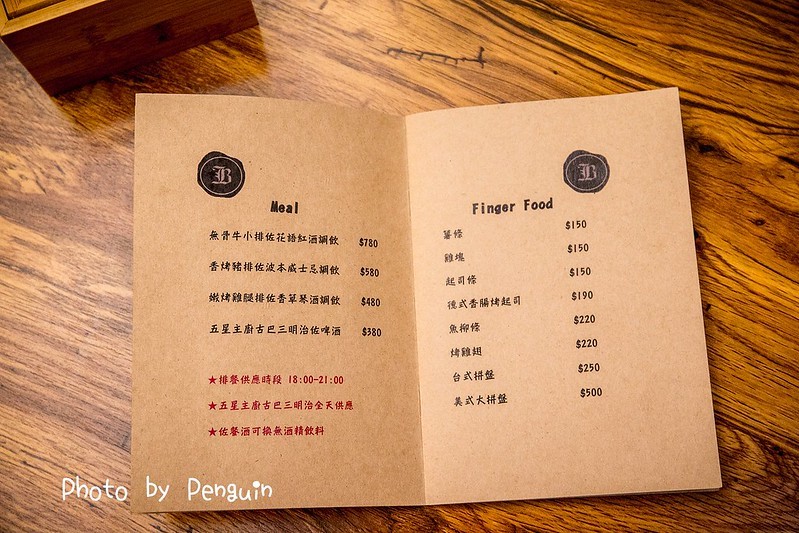 B
Meal
無骨牛小排佐花語紅酒調飲 $780
香烤豬排佐波本威士忌調飲 $580
嫩烤雞腿排佐香草琴酒調飲 $480
五星主廚古巴三明治佐啤酒 $380
★排餐供應時段 18:00-21:00
★五星主廚古巴三明治全天供應
★佐餐酒可換無酒精飲料
B
Finger Food
薯條 $150
雞塊 $150
起司條 $150
德式香腸烤起司 $190
魚柳條 $220
烤雞翅 $220
台式拼盤 $250
美式大拼盤 $500
Photo by Penguin